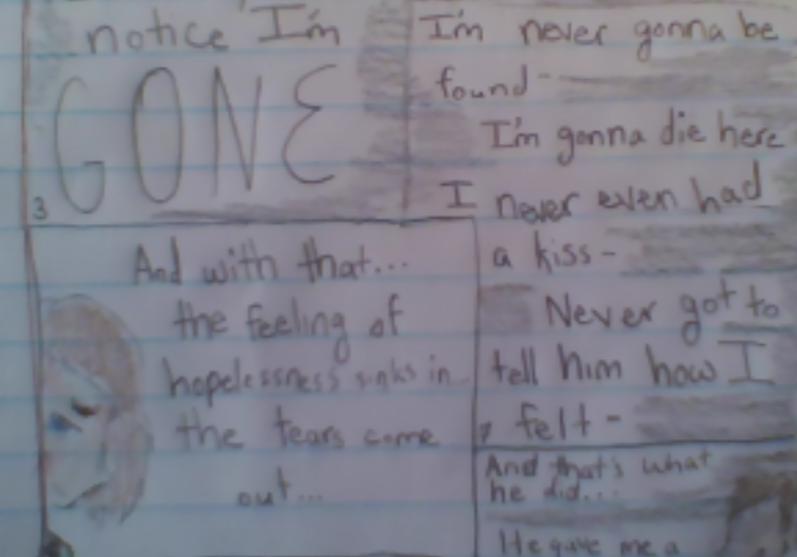 notice I'm
GONE
3
I'm never gonna be
found-
I'm gonna die here
I never even had
a kiss-
Never got to
tell him how I
felt-
And with that...
the feeling of
hopelessness sinks in
the tears come
out...
And that's what
he did...
He gave me a